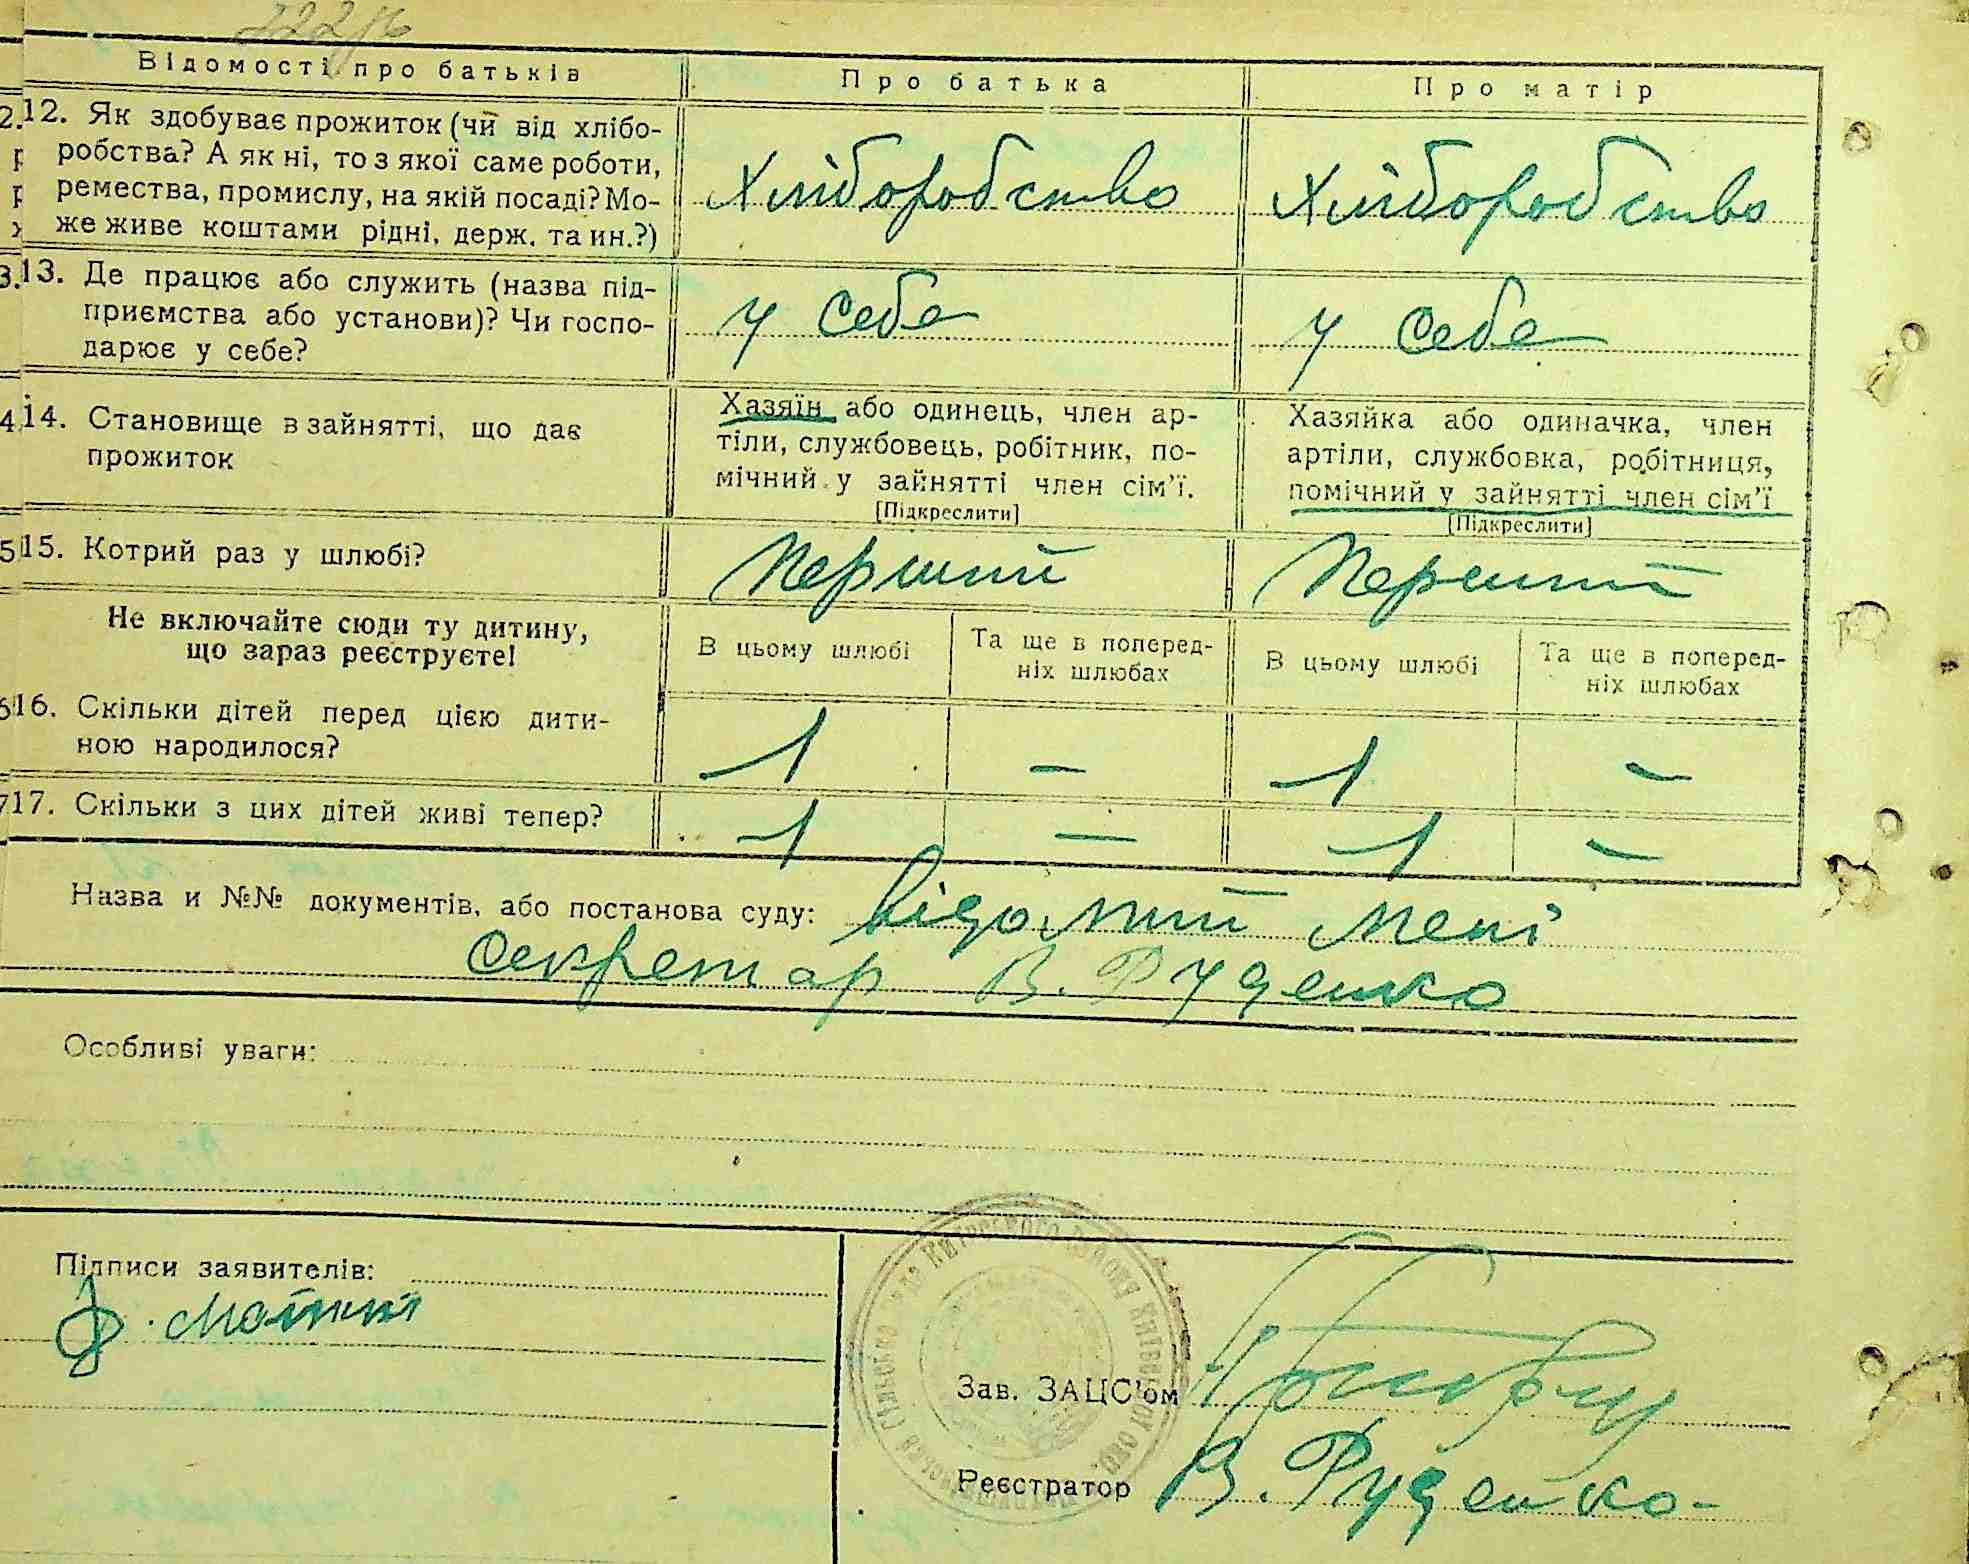 Відомості про батьків
Про батька
Про матір
12. Як здобуває прожиток (чи від хлібо-
робства? А як ні, то з якої саме роботи,
ремества, промислу, на якій посаді? Мо-
же живе коштами рідні, держ. та ин.?)
Хліборобство
Хліборобство
13. Де працює або служить (назва під-
приємства або установи)? Чи госпо-
дарює у себе?
у себе
у себе
14. Становище в зайнятті, що дає
прожиток
Хазяїн або одинець, член ар-
тіли, службовець, робітник, по-
мічний у зайнятті член сім'ї.
[Підкреслити]
Хазяйка або одиначка, член
артіли, службовка, робітниця,
помічний у зайнятті член сім'ї
[Підкреслити]
15. Котрий раз у шлюбі?
Перший
Перший
Не включайте сюди ту дитину,
що зараз реєструєте!
В цьому шлюбі
Та ще в поперед-
ніх шлюбах
В цьому шлюбі
Та ще в поперед-
ніх шлюбах
16. Скільки дітей перед цією дити-
ною народилося?
1 — 1 —
17. Скільки з цих дітей живі тепер?
1 — 1 —
Назва и №№ документів, або постанова суду: відомий мені
секретар В. Руденко
Особливі уваги:
Підписи заявителів:
Зав. ЗАЦС'ом
Реєстратор В. Руденко